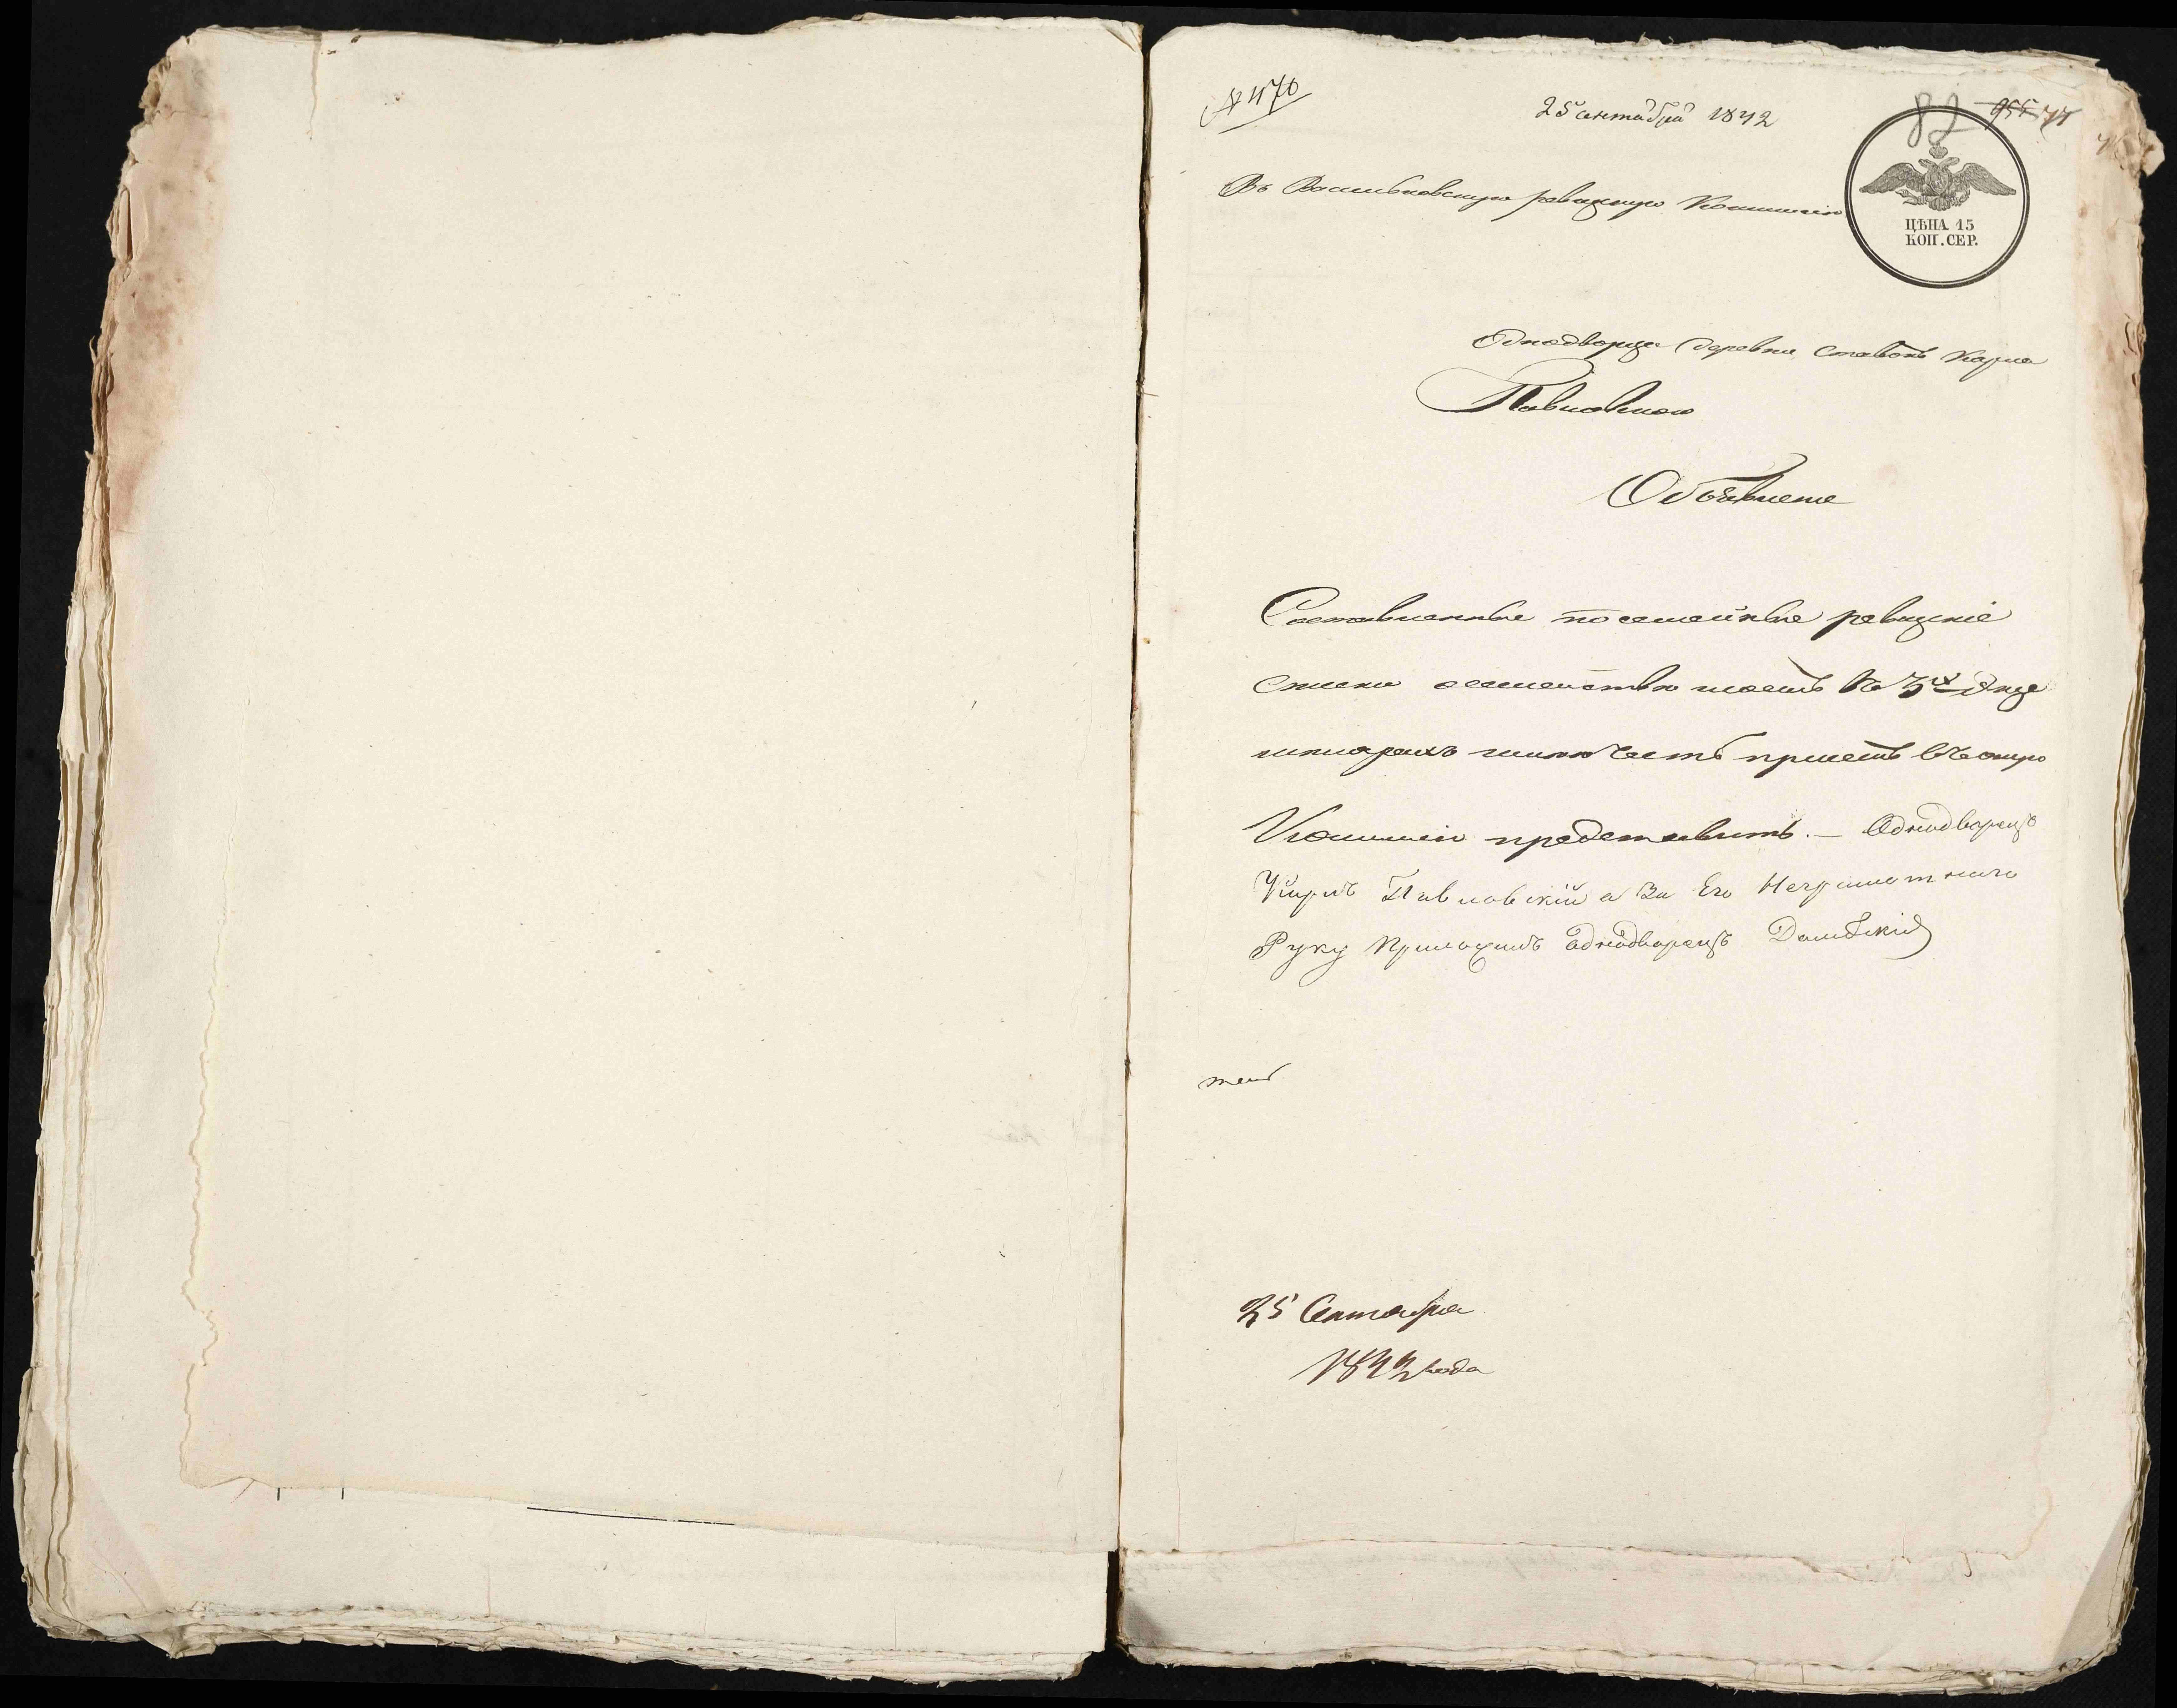 № 470
25 сентября 1842
82 955 77
Въ Васильковскую ревизскую Коммисію
ЦѢНА 15
КОП. СЕР.
Однодворца деревни Ставокъ Карла
Павловского
Объявленіе
Составленные посемейные ревизскіе
списки о семействѣ моемъ въ 3х Экзе
мплярахъ имѣю честь при семъ въ оную
Коммисію представить. — Однодворецъ
Карлъ Павловскій а За Его Неграмотного
Руку Приложилъ однодворецъ
25 Сентября
1842 года